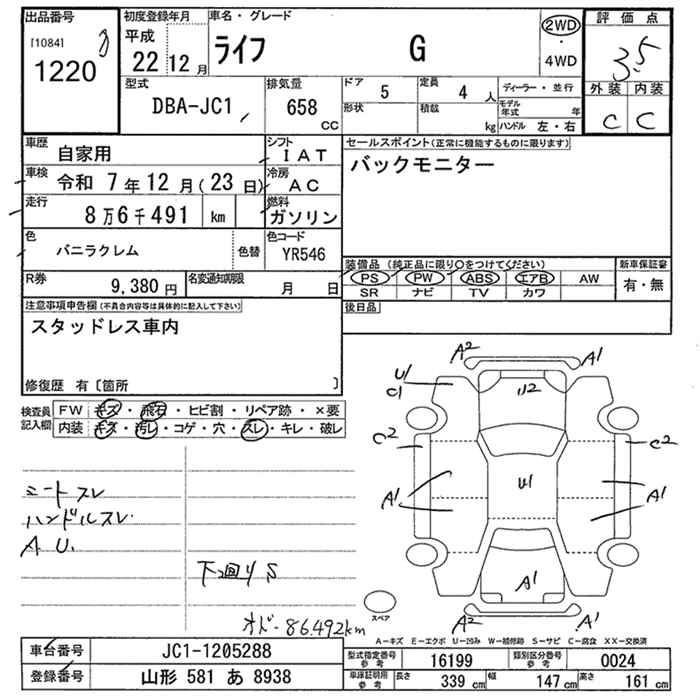 出品番号
[1084]
1220
初度登録年月
平成
22 12 月
車名・グレード
ライフ G
2WD
・
4WD
評価点
3.5
外装 内装
C C
型式
DBA-JC1
排気量
658
CC
ドア 5
形状
定員 4 人
積載 kg
ディーラー・並行
モデル年式 年
ハンドル 左・右
車歴
自家用
シフト
IAT
車検
令和 7年 12月(23日)
冷房
AC
走行
8万6千491 km
燃料
ガソリン
色
バニラクレム
色替
色コード
YR546
R券
9,380 円
名変通知期限
月 日
セールスポイント(正常に機能するものに限ります)
バックモニター
装備品(純正品に限り○をつけてください)
PS PW ABS エアB AW
SR ナビ TV カワ
新車保証書
有・無
後日品
注意事項申告欄(不具合内容等は具体的に記入して下さい)
スタッドレス車内
修復歴 有〔箇所 〕
検査員
記入欄
FW キズ・飛石・ヒビ割・リペア跡・×要
内装 キズ・汚レ・コゲ・穴・スレ・キレ・破レ
シートスレ
ハンドルスレ
A U.
下廻りS
オド-86.492km
A2
A1
U1
C1
U2
C2
C2
A1
U1
A1
A1
A2
A1
スペア
A-キズ E-エクボ U-凹み W-補修跡 S-サビ C-腐食 XX-交換済
車台番号
JC1-1205288
登録番号
山形 581 あ 8938
型式指定番号
参考
16199
類別区分番号
参考
0024
車庫証明用
参考
長さ 339 cm 幅 147 cm 高さ 161 cm